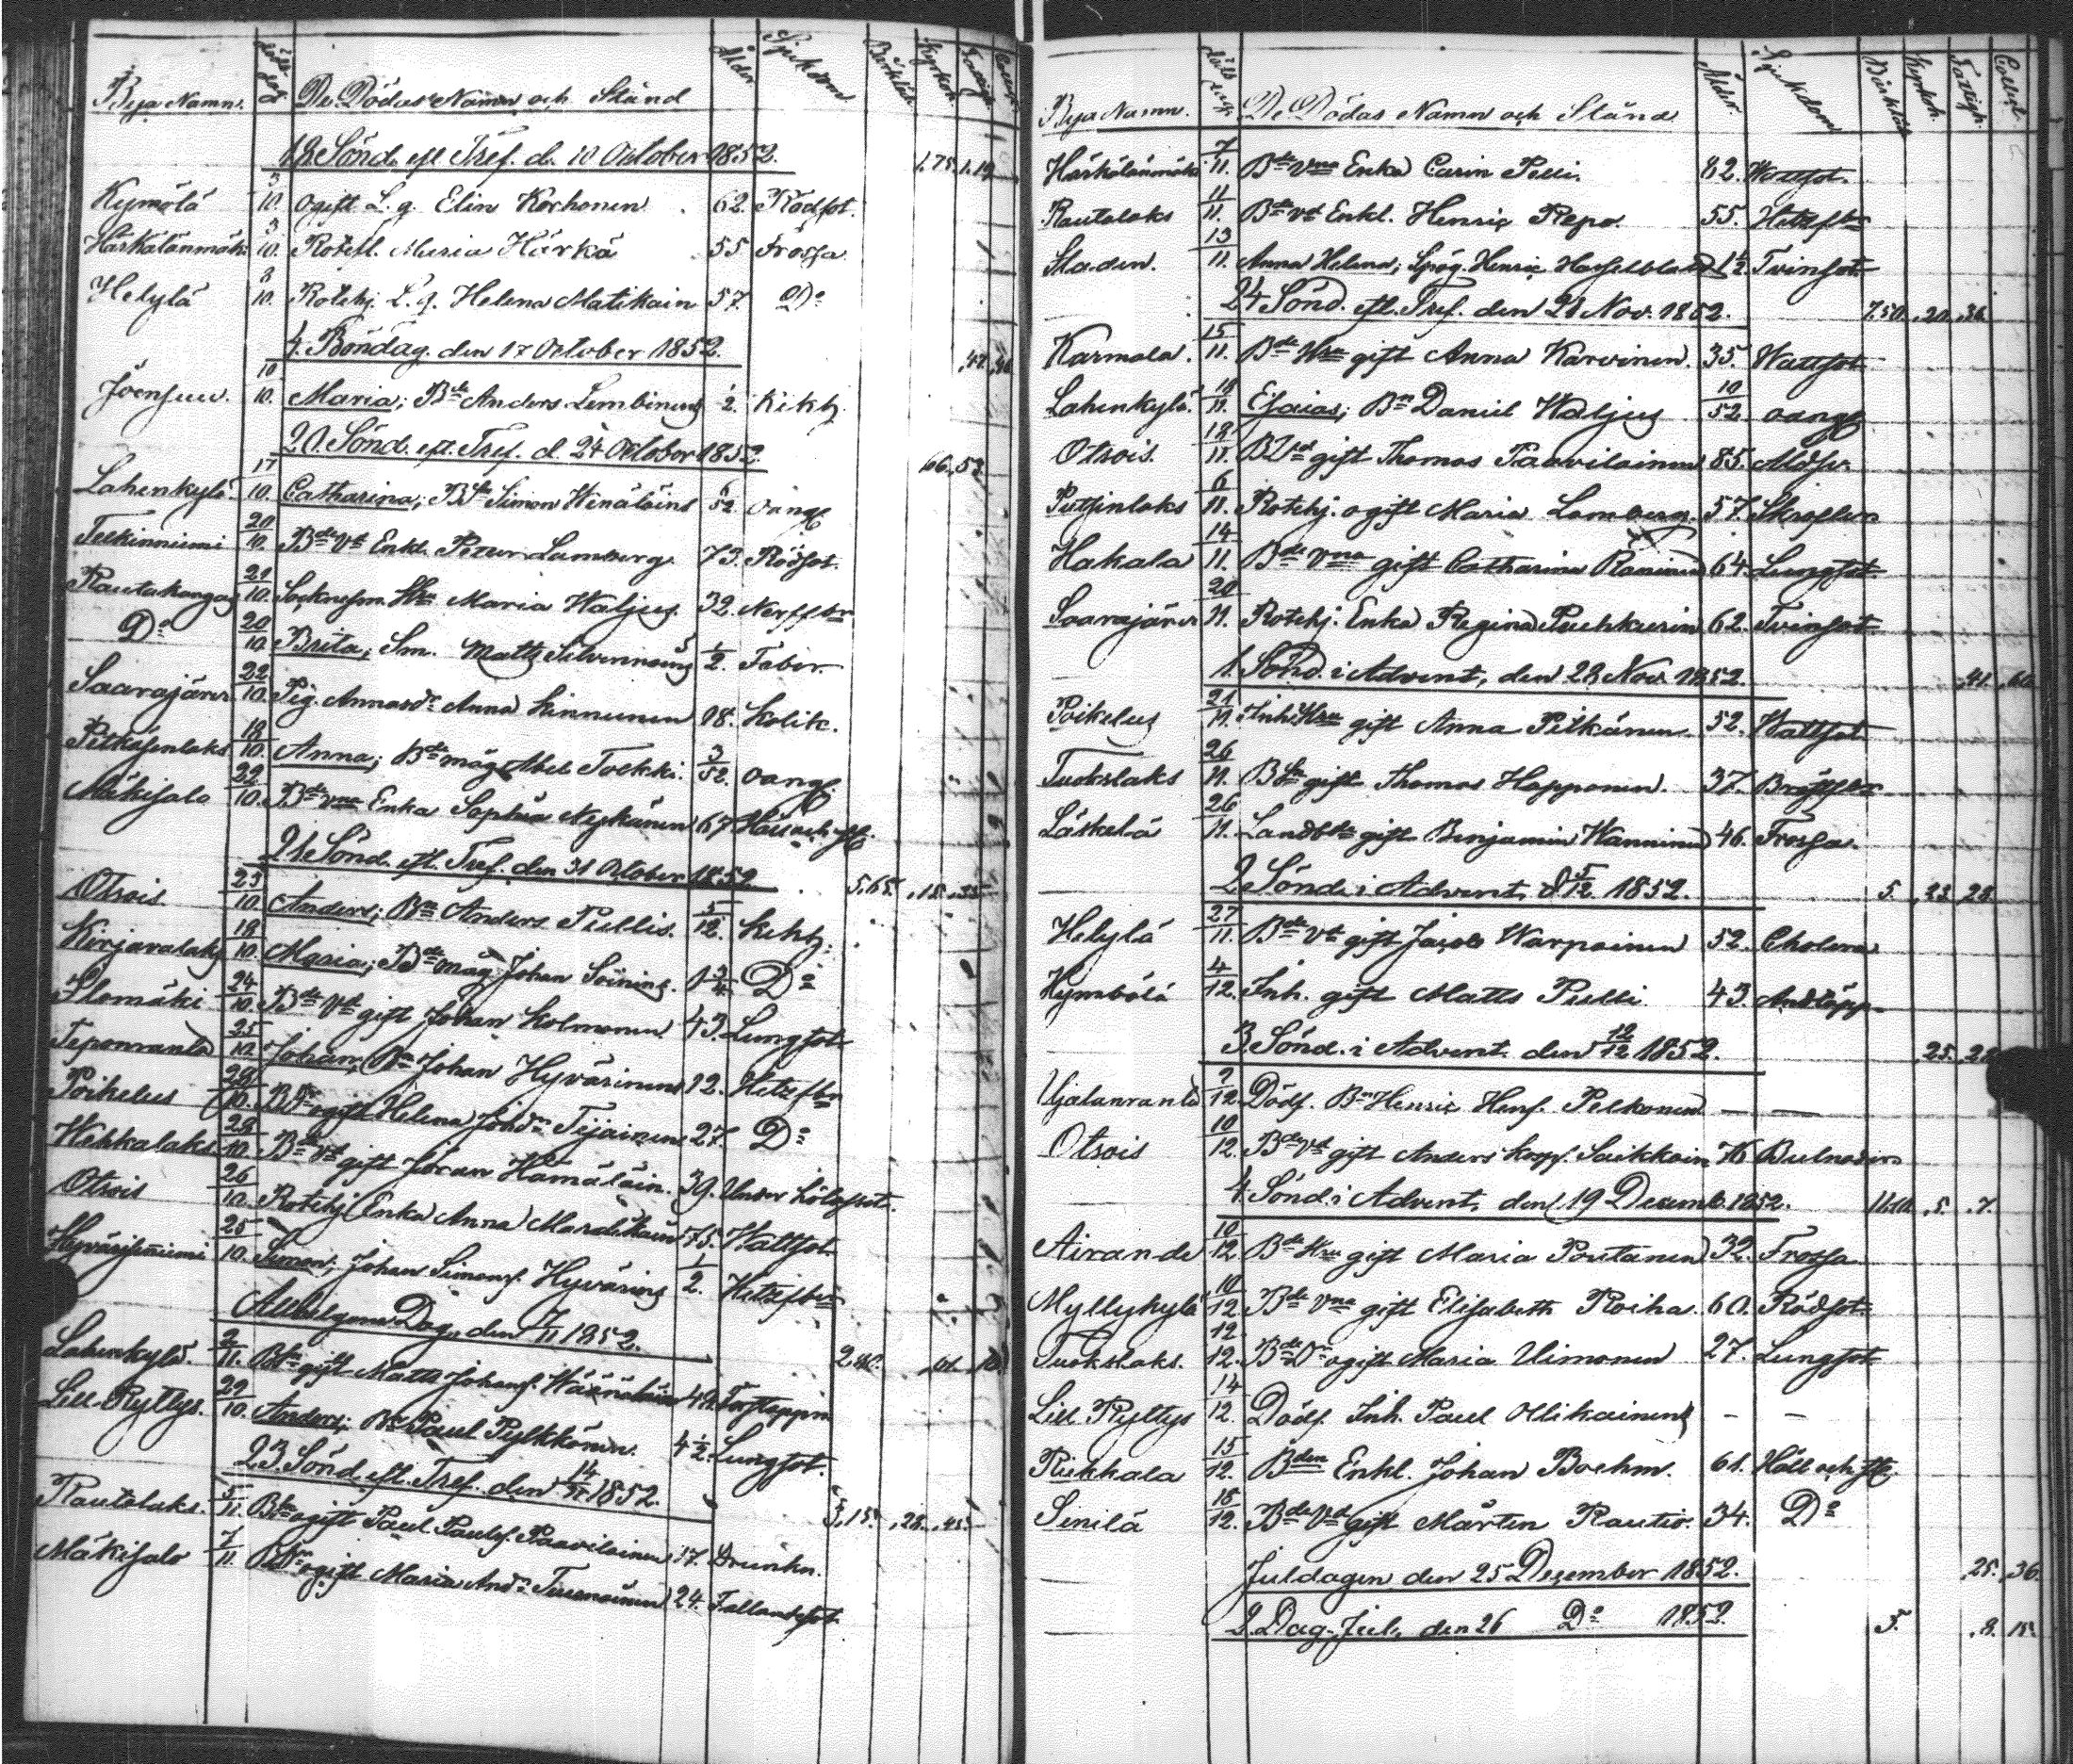 Bya Namn. Döds dag De Dödas Namn och Stånd Ålder Sjukdom Kyrkoh. Fattigh. Collect
19 Sönd. eft Tref. d. 10 October 1852. 1,75. 1,19
Kymölä 3/10. ogift L. g. Elin Korhonen 62. Rödsot.
Härkälänmäki 3/10. Rotefl. Maria Härkä 55 Frossa
Helylä 8/10. Rotehj. L. g. Helena Matikain 57. Do
4. Böndag. den 17 October 1852. ,47.
Joensuu. 10/10. Maria; Bde Anders Lembinens 1/2. Kikh.
20. Sönd. eft. Tref. d. 24 October 1852. 66. 53.
Lahenkylä. 17/10. Catharina; Simon Wenäläins 6/52. oangf.
Telkinniemi 20/10. Bde Vd Enkl. Petter Lamberg. 73. Rödsot.
Rautakangas 21/10. Socknesm. Hru Maria Waljus. 32. Nerffbr
Do 20/10. Brita; Sm. Matts Silvennoins 1/2. Feber.
Saarajärvi 22/10. Pig. Annasdr Anna Kinnunen 18. Kolik.
Pitkäsenlaks 18/10. Anna; Bde måg Abel Tolkki. 3/52. oangf.
Mäkisalo 22/10. Bde vna Enka Sophia Nykänen 67 Håll och st.
21 Sönd. eft. Tref. den 31 October 1852. 5,65. ,18. ,35
Otsois 23/10. Anders; Bn Anders Pullis. 5/12. Kikh.
Kirjavalaks 18/10. Maria; Bde måg Johan Soinins. 1 3/4. Do
Ilomäki 24/10. Bde Vd gift Johan Kolmonen 43. Lungsot
Teponranta 25/10. Johan; Bn Johan Hyvärinens 12. Hetzfbr
Poikelus 28/10. ogift Helena Johdr Tijainen 27. Do
Wehkalaks 28/10. Bde Vd gift Johan Hämäläin. 39. Under Lölessot.
Otsois 26/10. Rotehj Enka Anna Maralikain 75. Wattsot.
Hyvärilänniemi 25/10. Simon; Johan Simonss. Hyvärins 1/2. Hetzfbr
Allhelgona Dag, den 7/11 1852. 2.
Lahenkylä. 2/11. gift Matts Johanss. Wäänäläin
Lill-Rytlys. 29/10. Anders; Bn Paul Pylkkönen. 4 1/2. Lungsot.
23. Sönd. eft. Tref. den 14/11 1852. 3,15. ,28. ,45.
Rautalaks. 5/11. ogift Paul Paulss. Paavilainen 17. Drunkn.
Mäkisalo 7/11. ogift Maria Anddr Tuunainen 24. Fallandesot.
Bya Namn. Döds dag De Dödas Namn och Stånd Ålder. Sjukdom Kyrkoh. Fattigh. Collect
Härkälänmäki 7/11. Bde Vna Enka Carin Pelli. 82. Wattsot.
Rautalaks 11/11. Bde Vd Enkl. Henric Repo. 55. Hetzfbr
Staden. 13/11. Anna Helena; Henric Hasselblad 1 1/2. Tvinsot
24 Sönd. eft. Tref. den 21 Nov. 1852. 7.50. ,20. ,36.
Karmala. 15/11. Bde Hru gift Anna Karvinen. 35. Wattsot
Lahenkylä. 18/11. Esaias; Bn Daniel Waljus 10/52. oangf.
Otsois. 18/11. gift Thomas Paavilainen 85. Åldsv.
Putsinlaks 6/11. Rotehj. ogift Maria Lamberg. 57. Skroflen
Hakala 14/11. Bde Vna gift Catharina 64. Lungsot.
Saarajärvi 20/11. Rotehj. Enka Regina Puhkurin 62. Tvinsot.
1. Sönd. i Advent, den 28 Nov. 1852. ,41. ,60.
Poikelus 21/11. Inh. Hru gift Anna Pitkänen 52. Wattsot
Tuokslaks 26/11. gift Thomas Happonen. 37. Bröstfbr
Läskelä 26/11. Landb. gift Benjamin Wanninen 46. Frossa.
2 Sönd. i Advent d 5/12. 1852. 5. ,23. 28.
Helylä 27/11. Bde Vd gift Jacob Warpainen 52. Cholera
Kymbölä 4/12. Inh. gift Matts Pulli 43. Andtäpp.
3. Sönd. i Advent. den 12/12 1852. 25.
Ujalanranta 9/12. Dödf. Bn Henric Hens. Pelkonen — —
Otsois 10/12. Bde Vd gift Anders Saikkoin
4. Sönd. i Advent, den 19 Decemb. 1852. ,5. ,7.
Airande 10/12. Bde Hru gift Maria Poutanen 32. Frossa
Myllykylä 10/12. Bde Vna gift Elisabeth Roiha. 60. Rödsot
Tuokslaks. 12/12. Bde Dr ogift Maria Uimonen 27. Lungsot
Lill Rytlys 14/12. Dödf. Inh. Paul Ollikainens — —
Riekkala 15/12. Bden Enkl. Johan Boehm. 61. Håll och st.
Sinilä 18/12. Bde Vd gift Mårten Rautio. 34. Do
Juldagen den 25 December 1852. ,25. ,36.
2. Dag Jul, den 26 Do 1852. 5. ,8. 15.